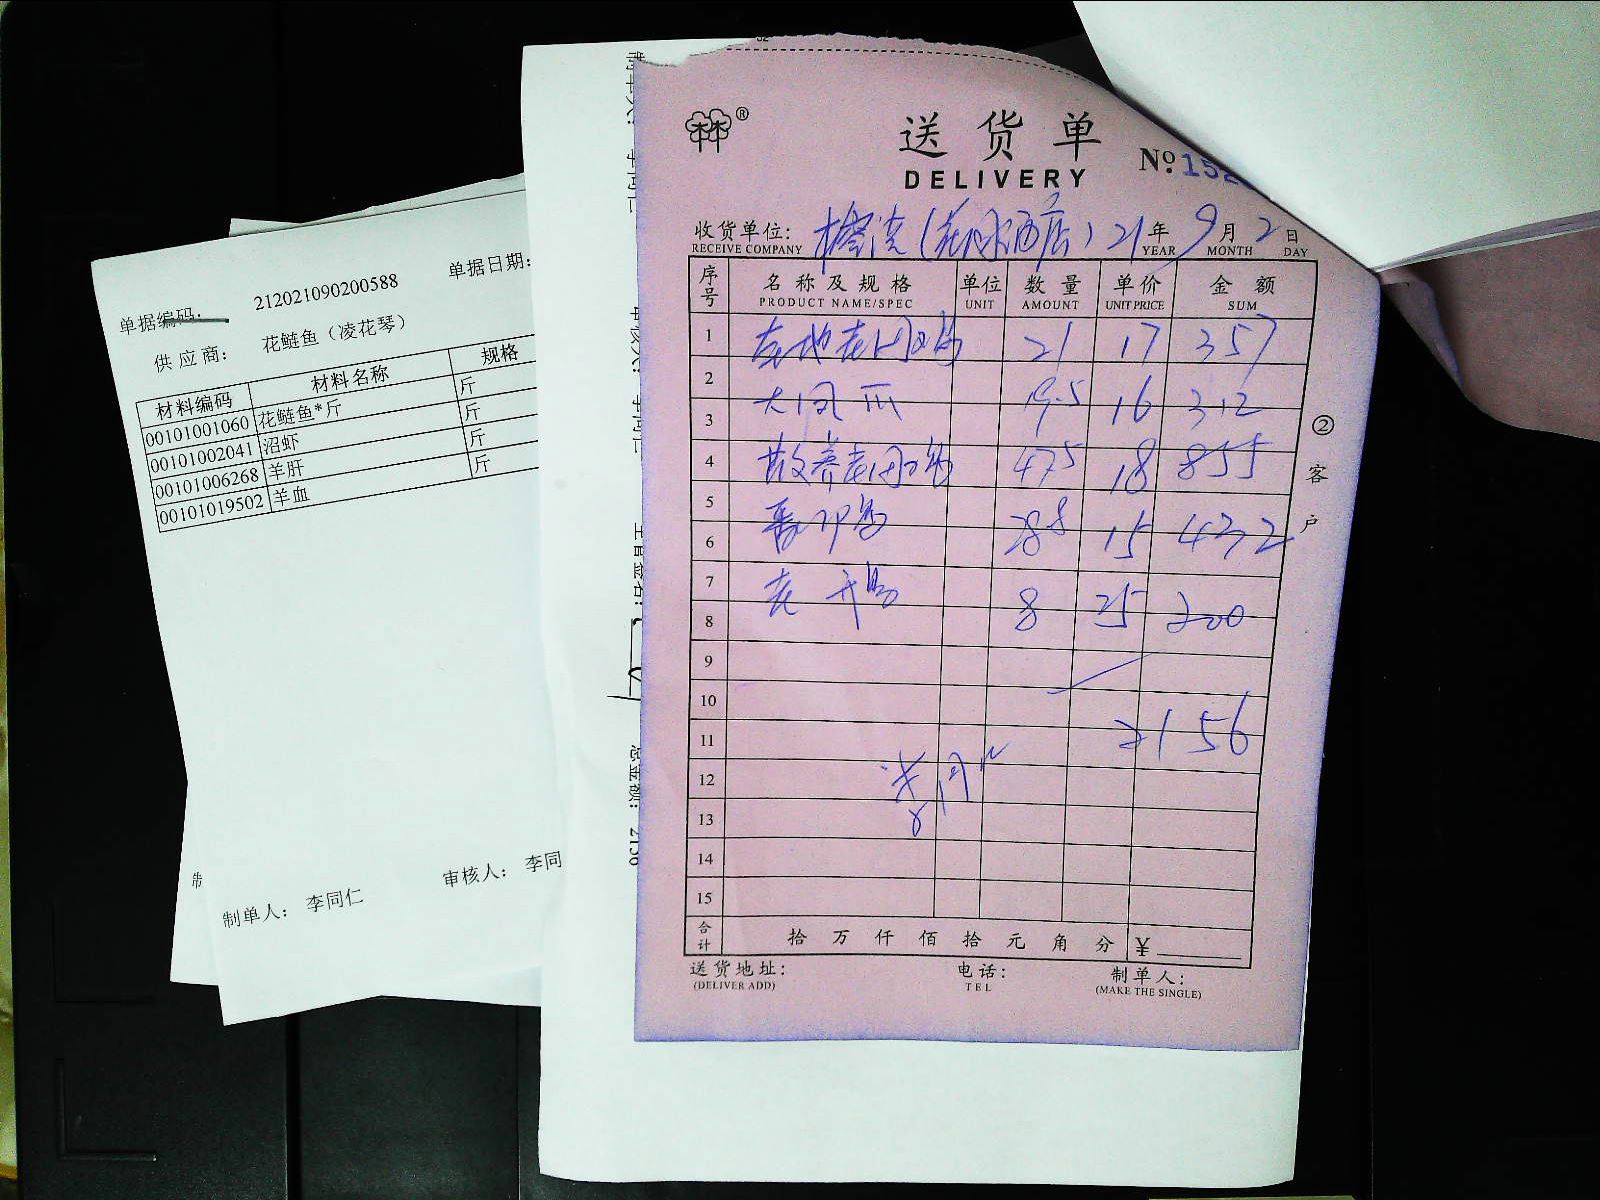 单据编码: 212021090200588 单据日期:
供应商: 花鲢鱼（凌花琴）
材料编码 材料名称 规格
00101001060 花鲢鱼*斤 斤
00101002041 沼虾 斤
00101006268 羊肝 斤
00101019502 羊血 斤
制单人: 李同仁 审核人: 李同
制
总金额: 2156
®
送货单
DELIVERY
№ 152
收货单位: 21年 9月 2日
RECEIVE COMPANY YEAR MONTH DAY
序号 名称及规格 单位 数量 单价 金额
PRODUCT NAME/SPEC UNIT AMOUNT UNIT PRICE SUM
1 21 17 357
2 大 爪 19.5 16 312
3
4 散养老 47.5 18 855
5
6 28.8 15 432
7 老 8 25 200
8
9
10
11 2156
12 李同仁
13
14
15
合计 拾 万 仟 佰 拾 元 角 分 ¥
送货地址: 电话: 制单人:
(DELIVER ADD) TEL (MAKE THE SINGLE)
②客户